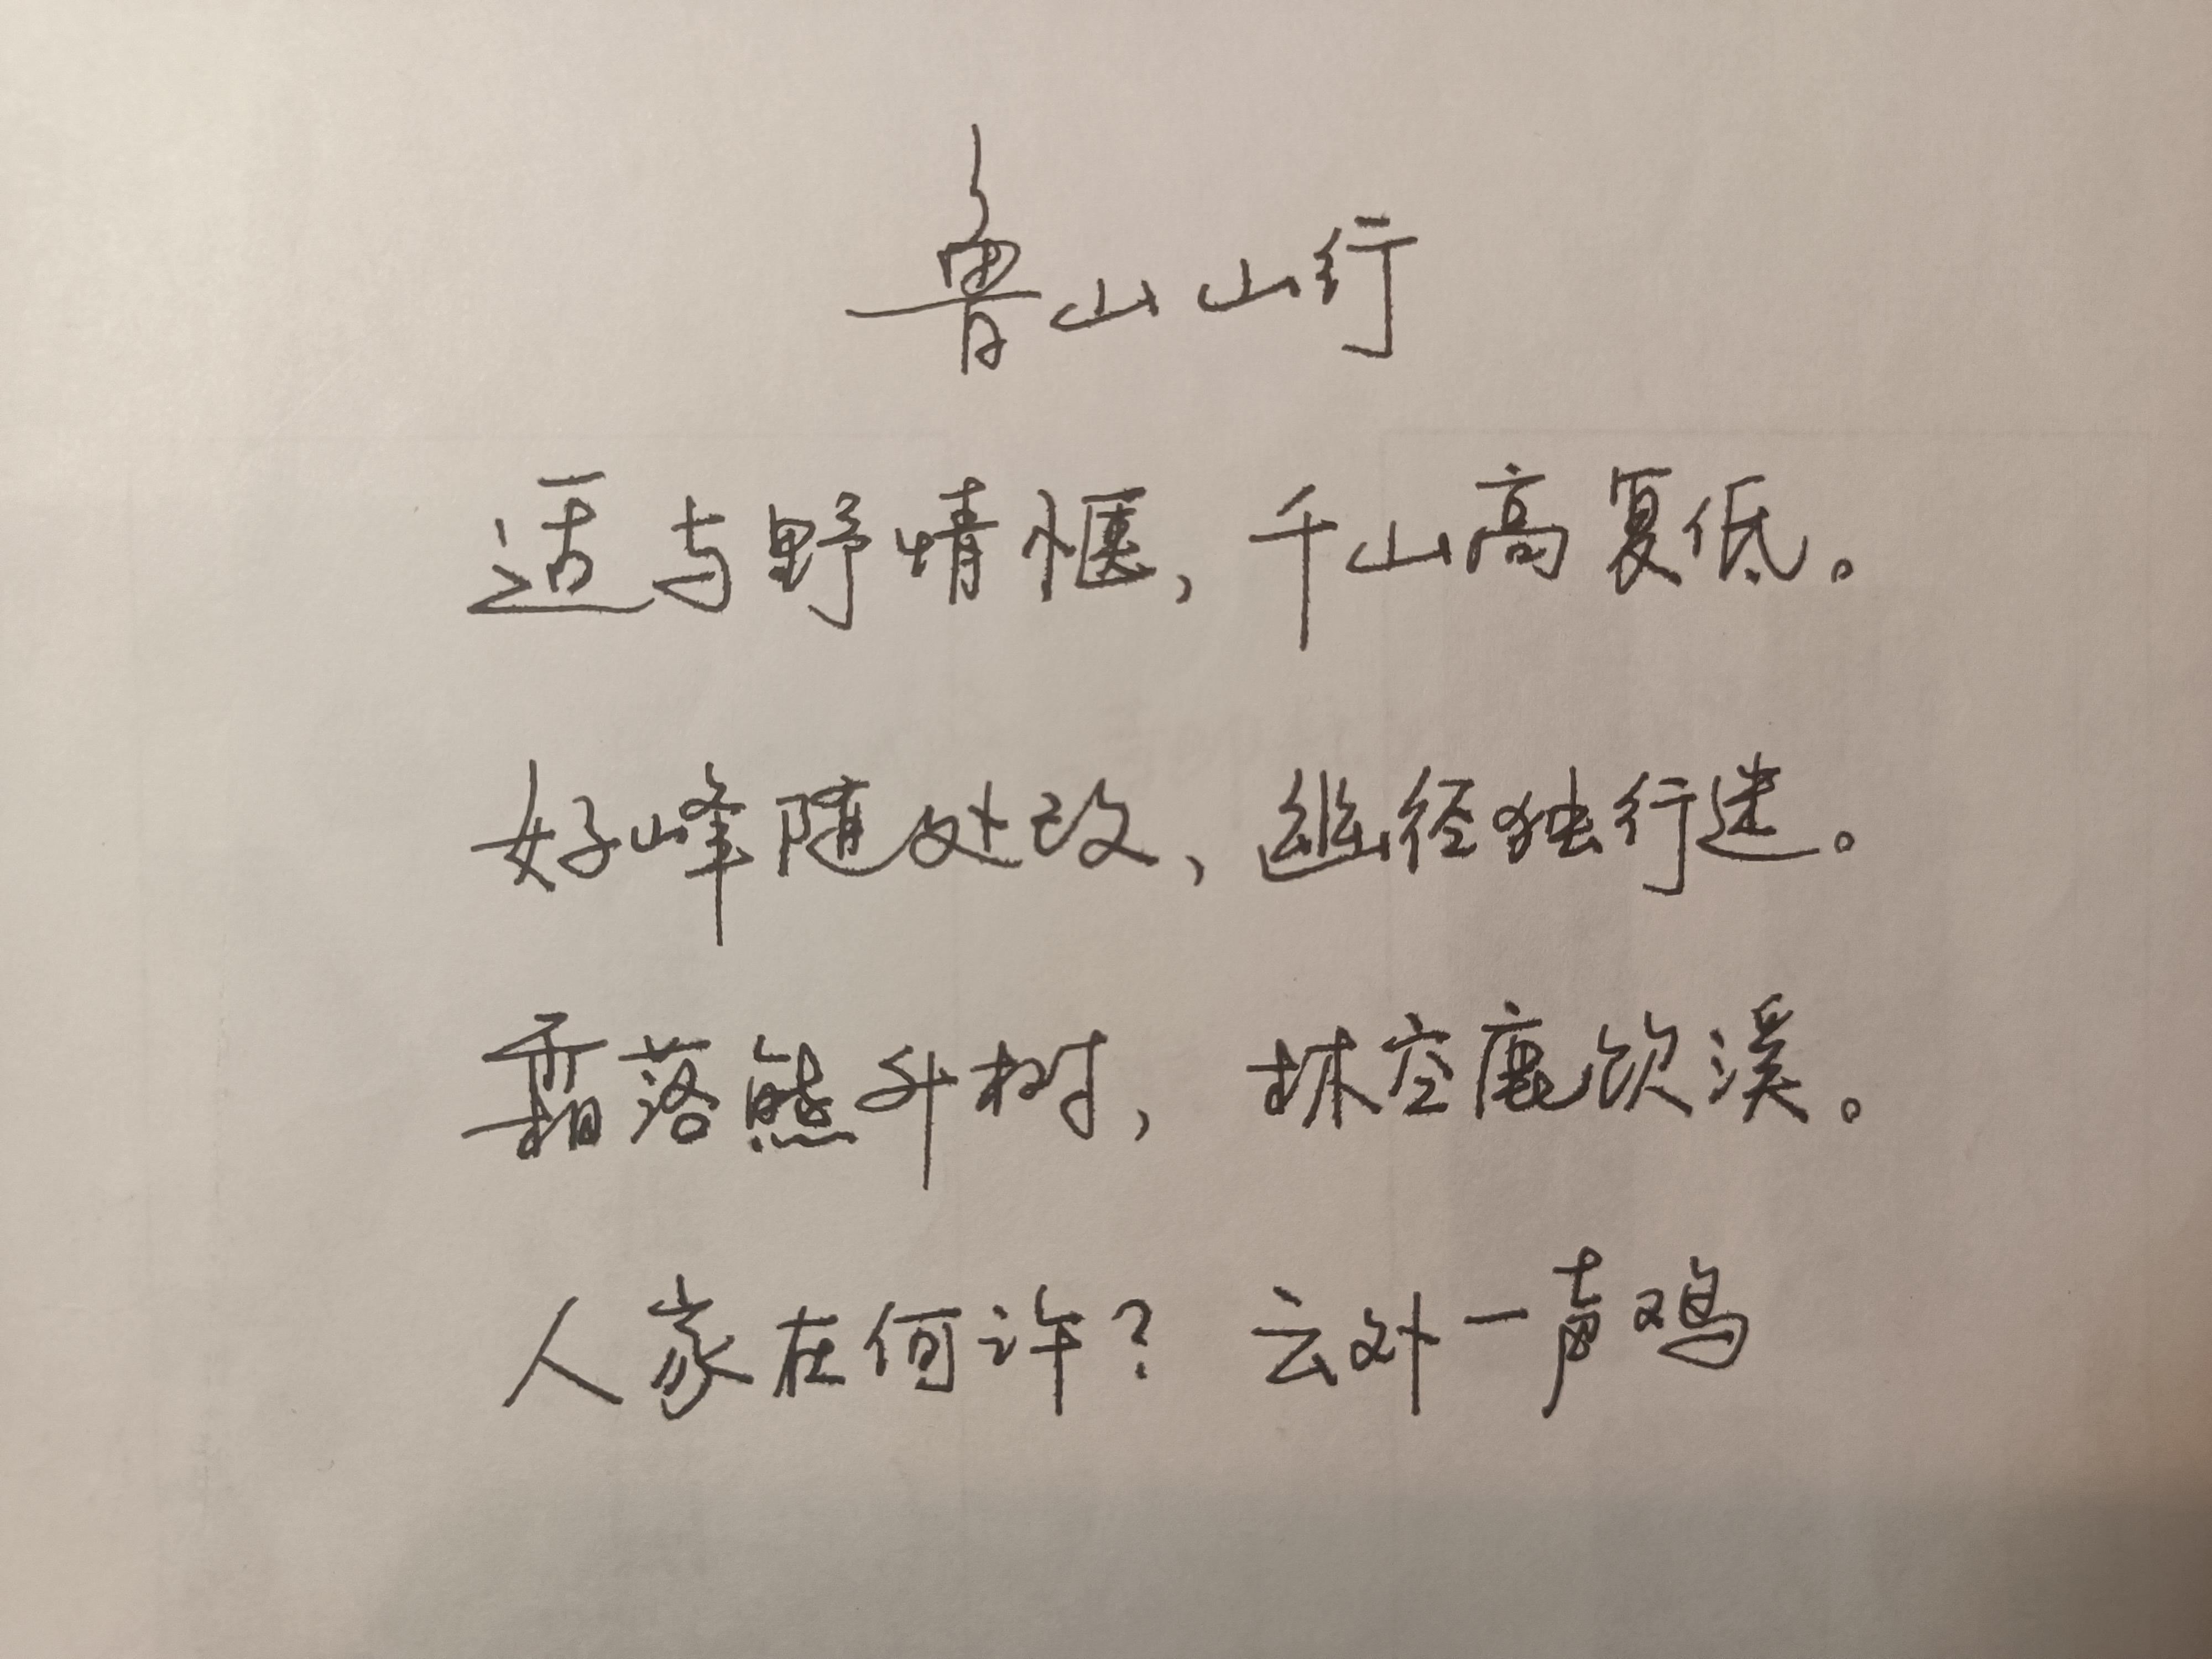 鲁山山行
适与野情惬，千山高复低。
好峰随处改，幽径独行迷。
霜落熊升树，林空鹿饮溪。
人家在何许？云外一声鸡